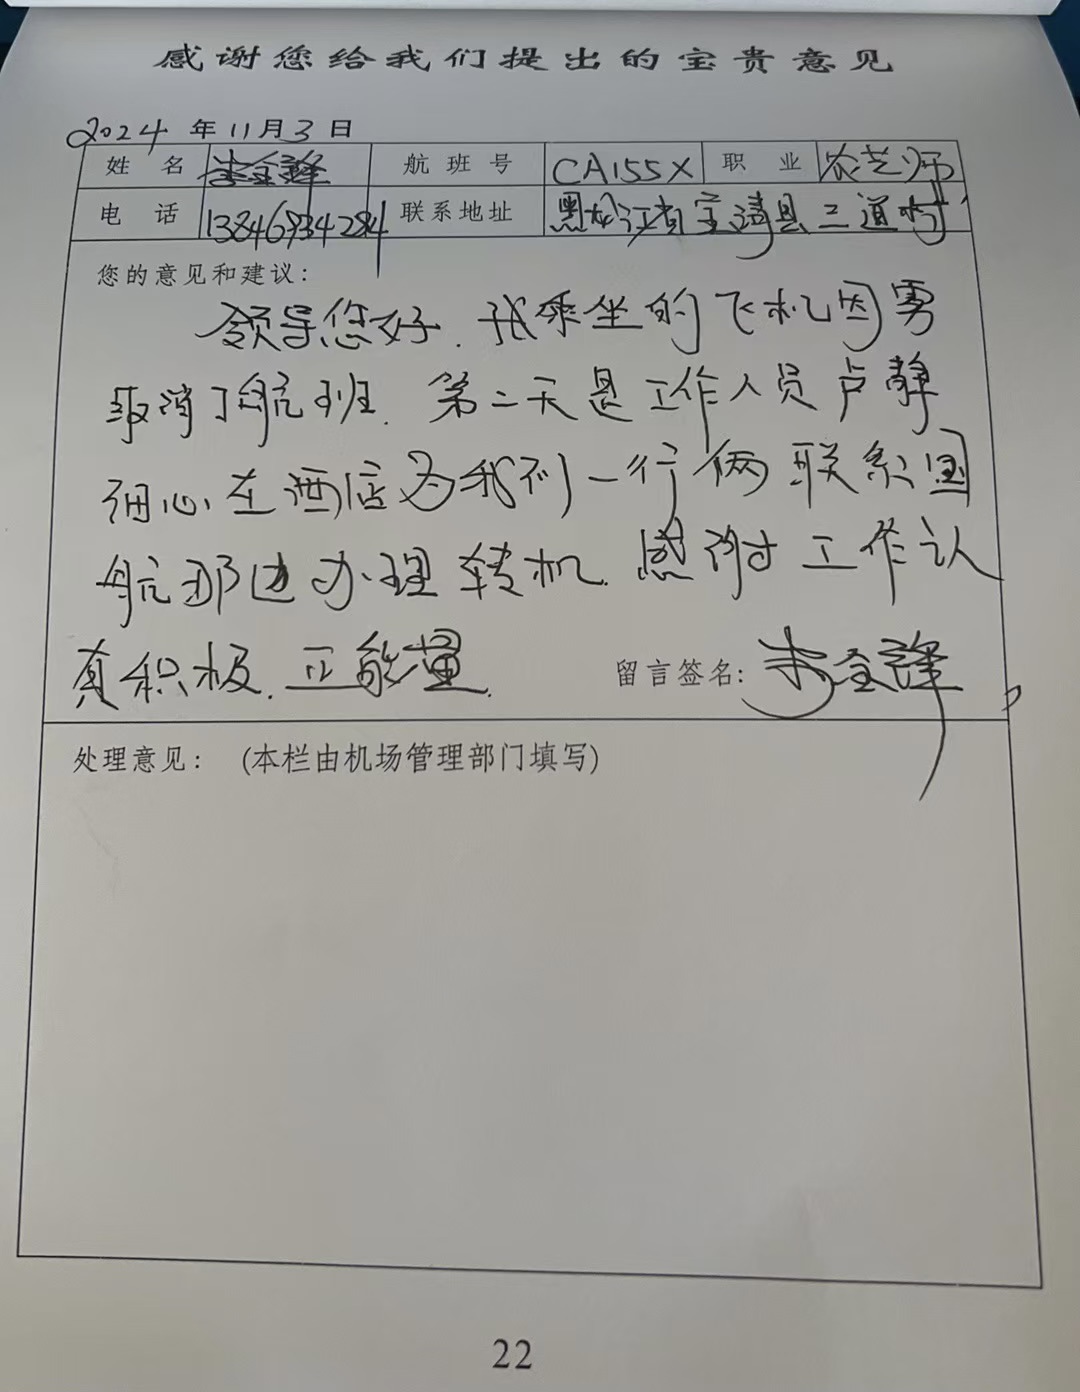 感谢您给我们提出的宝贵意见
2024年11月3日
姓 名 李全锋 航班号 CA155X 职 业 农艺师
电 话 联系地址 黑龙江省宝清县三道村
您的意见和建议：
领导您好.我乘坐的飞机因雾
取消了航班.第二天是工作人员卢静
细心在酒店为我们一行俩联系国
航那边办理转机.感谢工作认
真积极.正能量.
留言签名： 李全锋
处理意见： (本栏由机场管理部门填写)
22